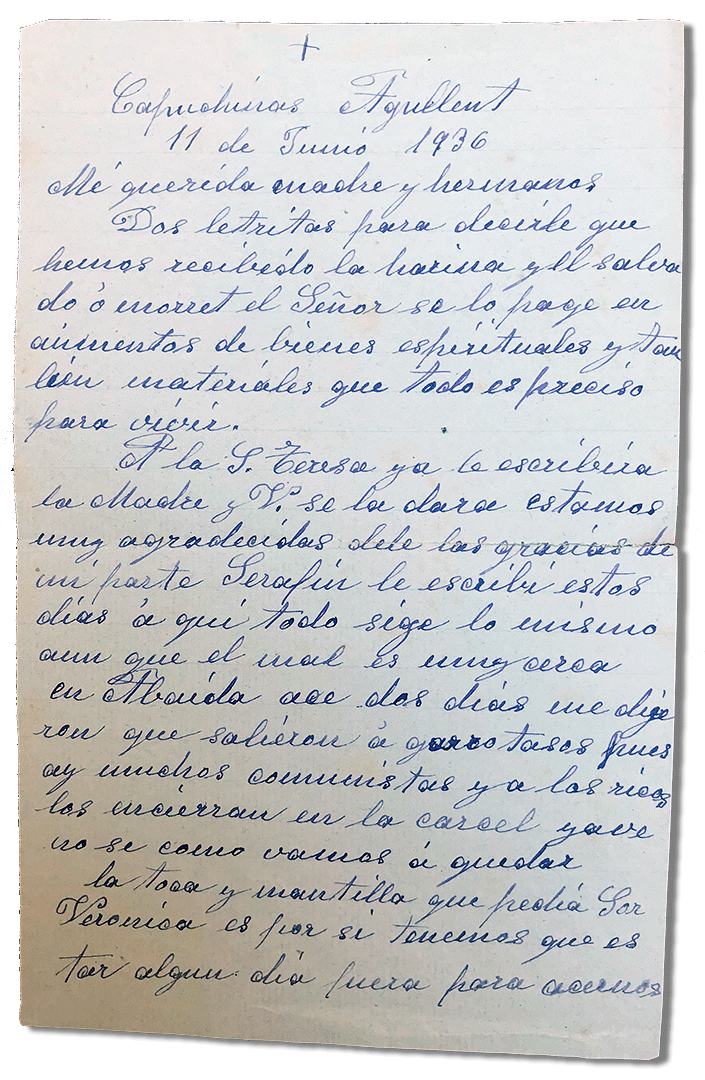 +
Capuchinas Agullent
11 de Junio 1936
Mi querida madre y hermanos
Dos letritas para decirle que
hemos recibido la harina y ll salva
do ó morret el Señor se lo page en
aumentos de bienes espirituales y tan
bien materiales que todo es preciso
para vivir.
A la S. Teresa ya le escribira
la Madre y V. se la dara estamos
muy agradecidas dele las gracias de
mi parte Serafin le escribi estos
dias á qui todo sige lo mismo
aun que el mal es muy cerca
en Abaida ace dos dias me dige
ron que salieron á garrotasos pues
ay muchos communistas y a los ricos
los encierran en la carcel yave
no se como vamos á quedar
la toca y mantilla que pedia Sor
Veronica es por si tenemos que es
tar algun dia fuera para acernos